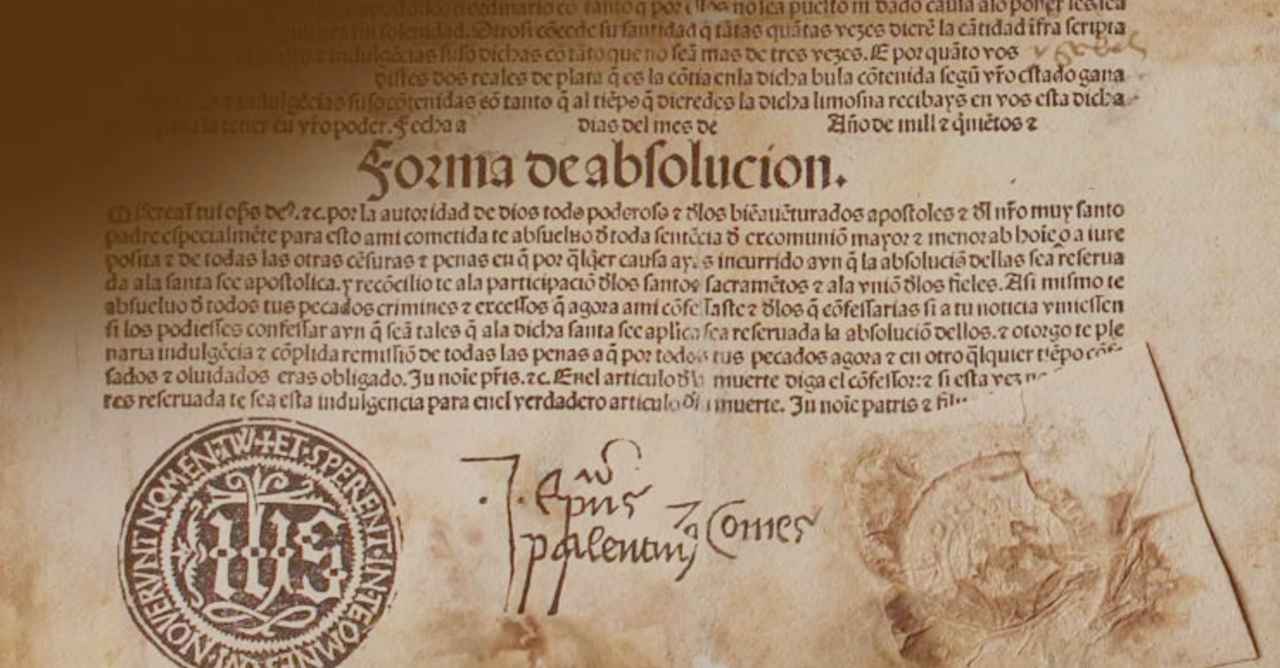 ordinario cō tanto q̄ por ellos no sea puesto ni dado causa a lo poner les sea
solenidad. Otrosi cōcede su santidad q̄ tātas quātas vezes dierē la cātidad ifra scripta
indulgēcias suso dichas cō tāto que no seā mas de tres vezes. E por quāto vos
distes dos reales de plata q̄ es la cōtia enla dicha bula cōtenida segū vr̄o estado gana
indulgēcias suso cōtenidas cō tanto q̄ al tiēpo q̄ dieredes la dicha limosna recibays en vos esta dicha
tener en vr̄o poder. Fecha a dias del mes de Año de mill ⁊ q̄uiētos ⁊
Forma de absolucion.
Misereat̄ tui op̄s de⁹. ⁊c. por la autoridad de dios todo poderoso ⁊ d̄los biēauēturados apostoles ⁊ d̄l nr̄o muy santo
padre especialmēte para esto a mi cometida te absueluo d̄ toda sentēcia d̄ excomuniō mayor ⁊ menor ab hoīe o a iure
posita ⁊ de todas las otras cēsuras ⁊ penas en q̄ por q̄lq̄er causa ayas incurrido avn q̄ la absoluciō dellas sea reserua
da ala santa see apostolica. y recōcilio te ala participaciō d̄los santos sacramētos ⁊ ala vniō d̄los fieles. Asi mismo te
absueluo d̄ todos tus pecados crimines ⁊ excessos q̄ agora a mi cōfessaste ⁊ d̄los q̄ cōfessarias si a tu noticia viniessen
si los podiesses confessar avn q̄ seā tales q̄ ala dicha santa see aplica sea reseruada la absoluciō dellos. ⁊ otorgo te ple
naria indulgēcia ⁊ cōplida remissiō de todas las penas a q̄ por todos tus pecados agora ⁊ en otro q̄lquier tiēpo cōfe
sados ⁊ oluidados eras obligado. In noīe pr̄is. ⁊c. Enel articulo d̄la muerte diga el cōfessor: ⁊ si esta vez no
res reseruada te sea esta indulgencia para enel verdadero articulo d̄la muerte. In noīe patris ⁊ filii
.J. Ep̄us
palentin⁹ Comes
NOVERVNT NOMEN TVV̄ + ET SPERENT IN TE OMNES QVI
IHS